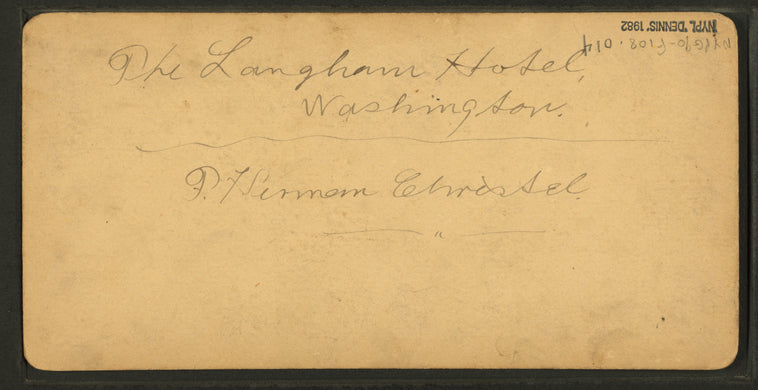 The Langham Hotel,
Washington.
P. Herman Christel.
NYPL 'DENNIS' 1982
NYPG90-F108.014